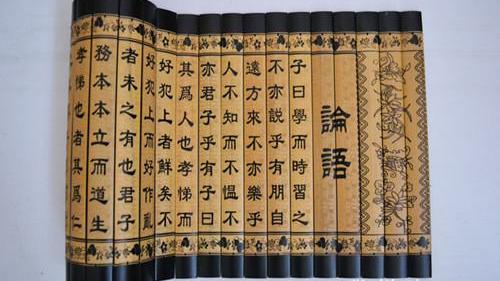 論語
子曰學而時習之
不亦說乎有朋自
遠方來不亦樂乎
人不知而不愠不
亦君子乎有子曰
其爲人也孝悌而
好犯上者鮮矣不
好犯上而好作亂
者未之有也君子
務本本立而道生
孝悌也者其爲仁